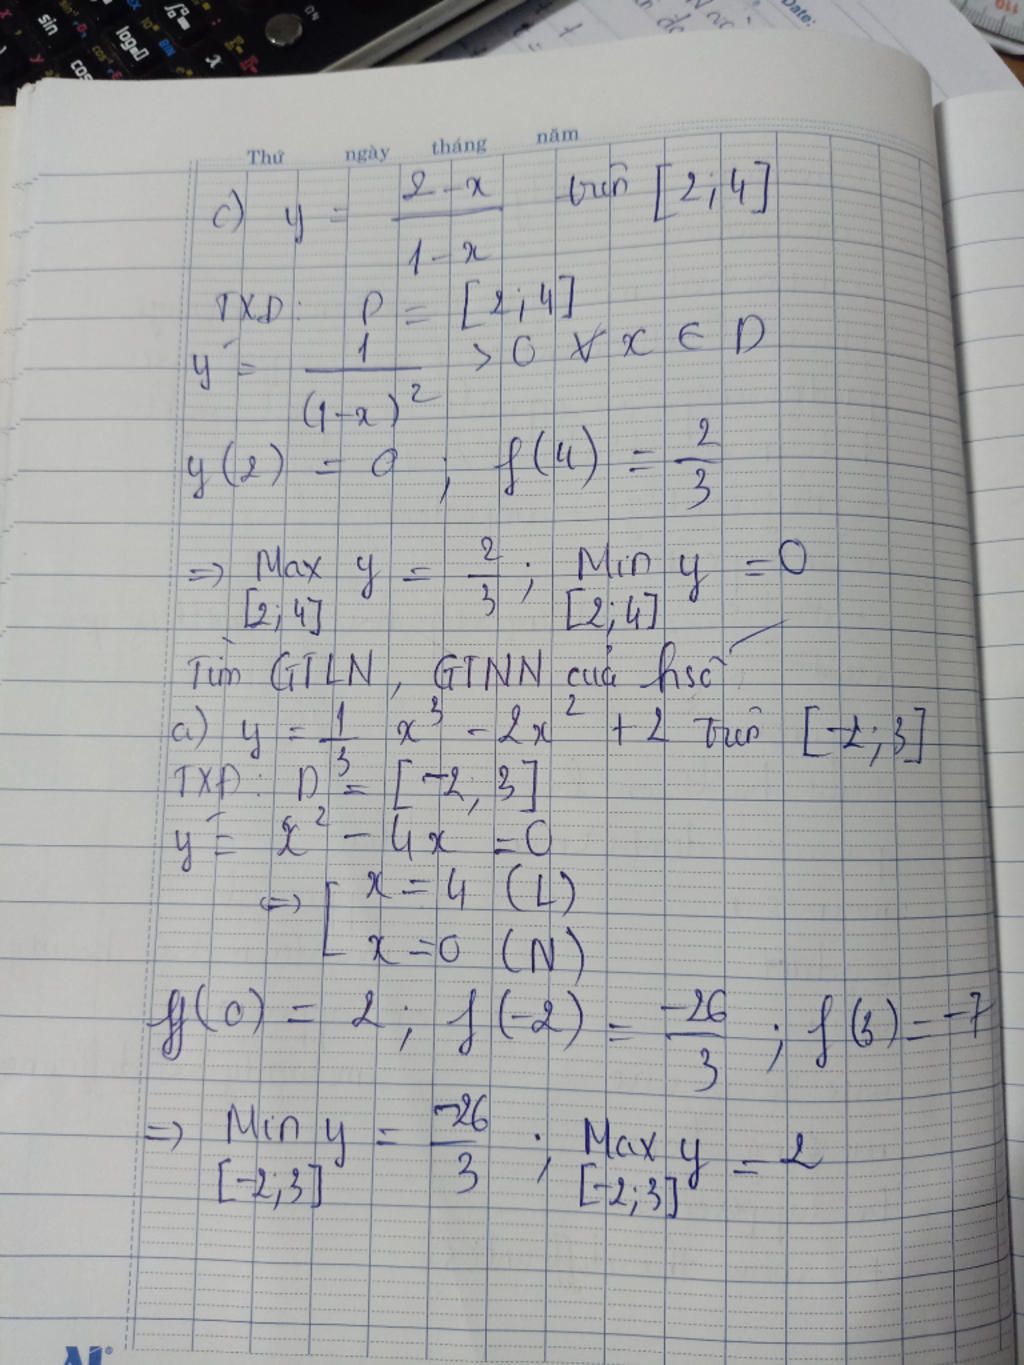 sin
log
cos
ON
Date:
Thứ ngày tháng năm
c) y = \frac{2-x}{1-x} trên [2;4]
TXD: D = [2;4]
y' = \frac{1}{(1-x)^2} > 0 ∀ x ∈ D
y(2) = 0 ; f(4) = \frac{2}{3}
=> Max y = \frac{2}{3} ; Min y = 0
[2;4] [2;4]
Tìm GTLN, GTNN của hsố
a) y = \frac{1}{3} x^3 - 2x^2 + 2 trên [-2;3]
TXD: D = [-2;3]
y' = x^2 - 4x = 0
<=> [ x = 4 (L)
x = 0 (N)
f(0) = 2 ; f(-2) = \frac{-26}{3} ; f(3) = -7
=> Min y = \frac{-26}{3} ; Max y = 2
[-2;3] [-2;3]